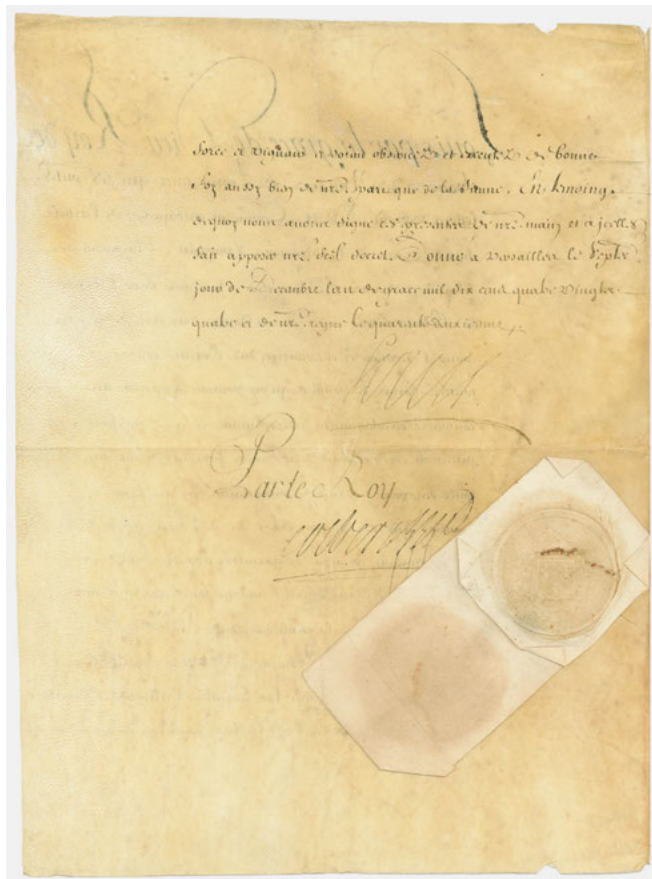 force et vigueur et soient observez et executez de bonne
foy aussy bien de nre part que de la sienne. En tesmoing
dequoy nous avons signé ces presentes de nre main et a icelles
fait apposer nre scel secret. Donné a Versailles le septe
jour de Decembre l'an de grace mil six cens quatre vingts
quatre et de nre regne le quarante deuxiesme
Louis
Par le Roy
Colbert